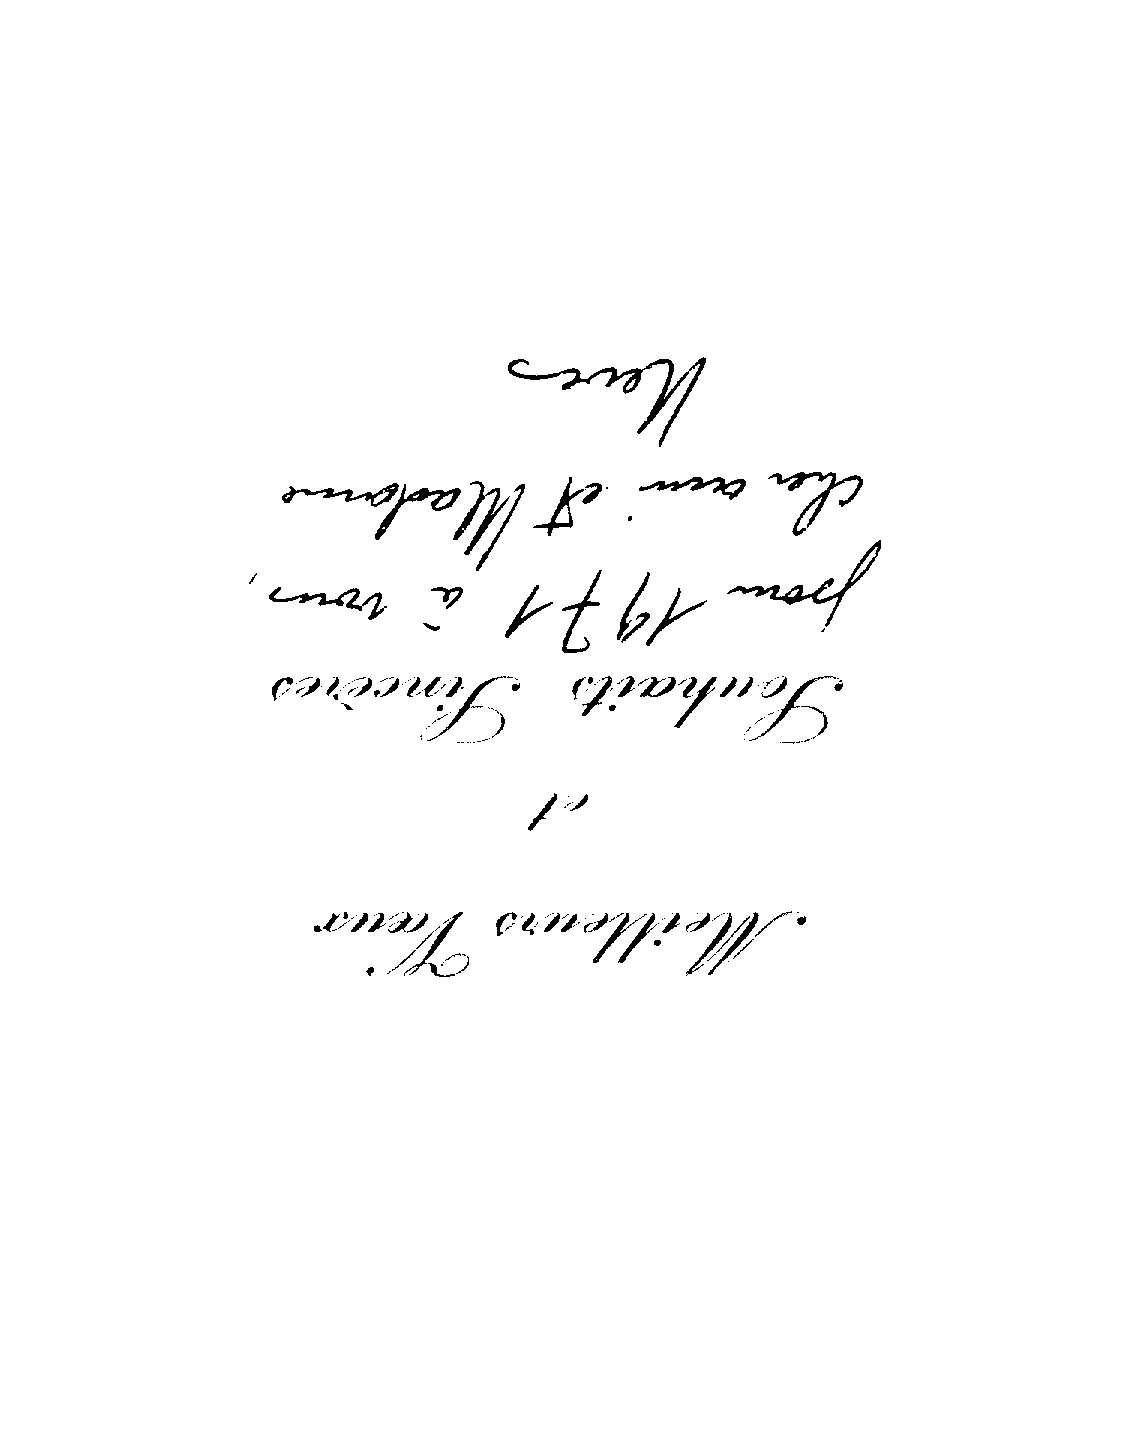 Meilleurs Vœux
et
Souhaits Sincères
pour 1971 à vous,
cher ami et Madame